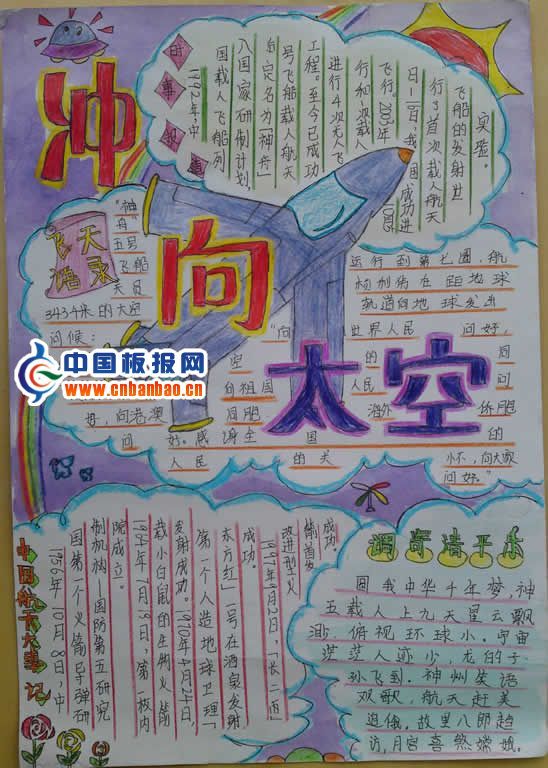 冲向太空
时事报道
1992年中
国载人飞船列
入国家研制计划,
后定名为「神舟」
号飞船载人航天
工程。至今已成功
进行4次无人飞
行和1次载人
飞行。2003年10月15
日-16日,我国成功进
行3首次载人航天
飞船的发射世
实验。
飞天语录
"神
舟"
五号
飞船
天员
3434米的太空
问候:
运行到第七圈,航
杨利伟在距地球
轨道向地球发出
"向世界人民问好,
空的同
向祖国人民问
同胞海外侨胞
好,向港澳
问好。感谢全国的
人民的关怀,向大家
问好。"
中国板报网
www.cnbanbao.cn
中国航天大事记
1956年10月8日,中
国第一个火箭导弹研
制机构—国防第五研究
院成立。
1964年7月19日,第一枚内
载小白鼠的生物火箭
发射成功。1970年4月24日,
第一个人造地球卫理「
东方红」一号在酒泉发射
成功。
1997年9月2日,「长二丙」
改进型火
箭首发
成功。
调寄清平乐
圆我中华千年梦,神
五载人上九天星云飘
渺,俯视环球小。宇宙
茫茫人迹少,龙的子
孙飞到。神州笑语
双歌,航天赶美
追俄,故里八郎趋
访,月宫喜煞嫦娥。